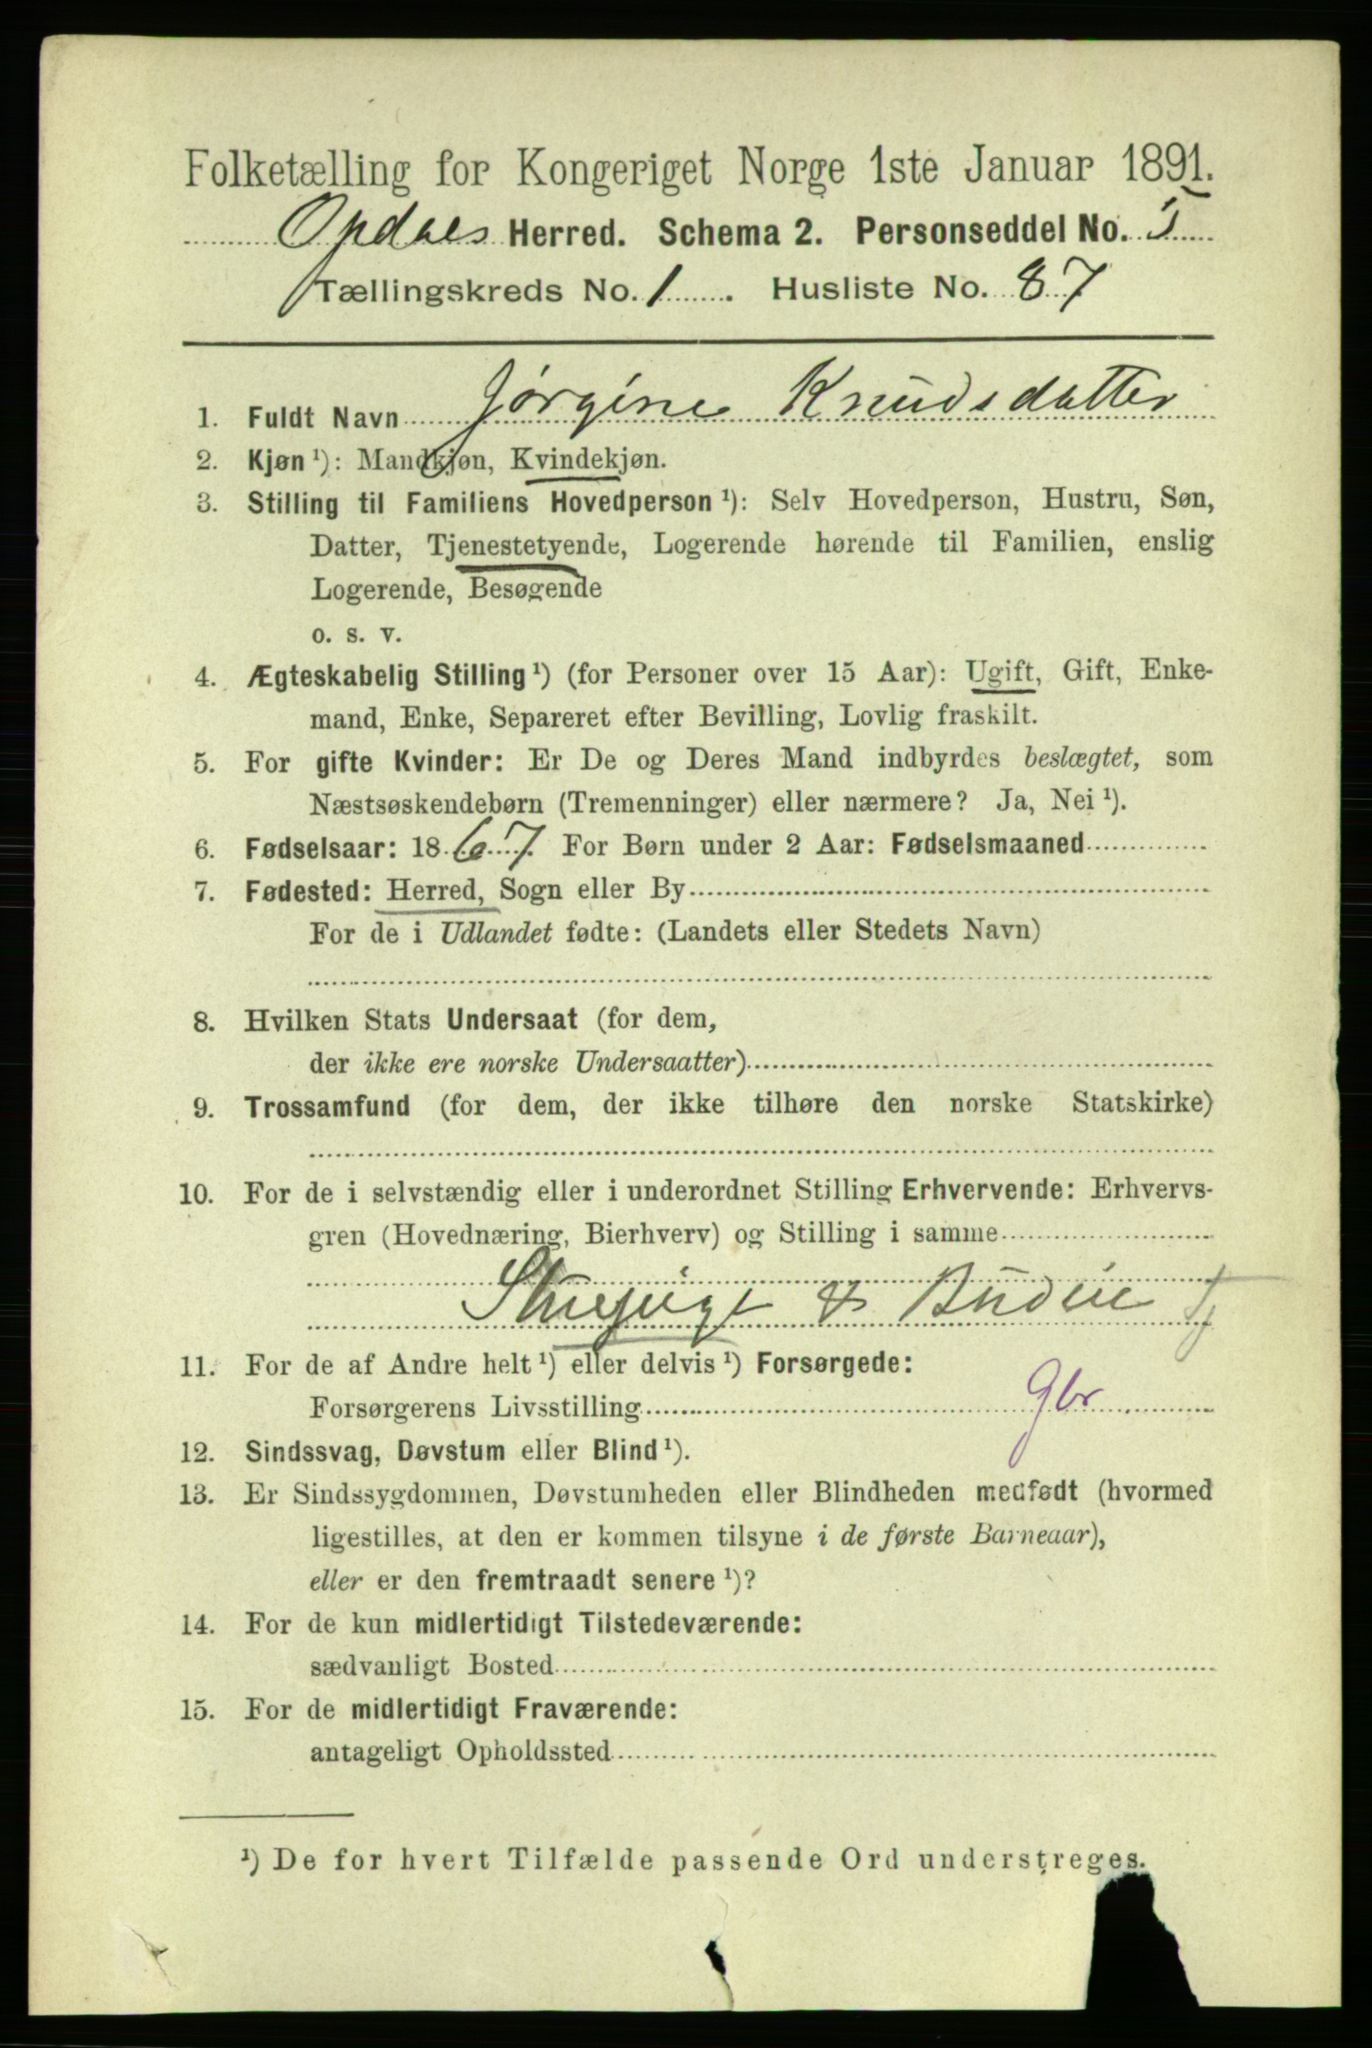 Folketælling for Kongeriget Norge 1ste Januar 1891.
Opdals Herred. Schema 2. Personseddel No. 5
Tællingskreds No. 1 . Husliste No. 87
1. Fuldt Navn Jørgine Knudsdatter
2. Kjøn ¹): Mandkjøn, Kvindekjøn.
3. Stilling til Familiens Hovedperson ¹): Selv Hovedperson, Hustru, Søn,
Datter, Tjenestetyende, Logerende hørende til Familien, enslig
Logerende, Besøgende
o. s. v.
4. Ægteskabelig Stilling ¹) (for Personer over 15 Aar): Ugift, Gift, Enke-
mand, Enke, Separeret efter Bevilling, Lovlig fraskilt.
5. For gifte Kvinder: Er De og Deres Mand indbyrdes beslægtet, som
Næstsøskendebørn (Tremenninger) eller nærmere? Ja, Nei ¹).
6. Fødselsaar: 1867. For Børn under 2 Aar: Fødselsmaaned
7. Fødested: Herred, Sogn eller By
For de i Udlandet fødte: (Landets eller Stedets Navn)
8. Hvilken Stats Undersaat (for dem,
der ikke ere norske Undersaatter)
9. Trossamfund (for dem, der ikke tilhøre den norske Statskirke)
10. For de i selvstændig eller i underordnet Stilling Erhvervende: Erhvervs-
gren (Hovednæring, Bierhverv) og Stilling i samme
& Budeie Tj
11. For de af Andre helt ¹) eller delvis ¹) Forsørgede:
Forsørgerens Livsstilling Gbr
12. Sindssvag, Døvstum eller Blind ¹).
13. Er Sindssygdommen, Døvstumheden eller Blindheden medfødt (hvormed
ligestilles, at den er kommen tilsyne i de første Barneaar),
eller er den fremtraadt senere ¹)?
14. For de kun midlertidigt Tilstedeværende:
sædvanligt Bosted
15. For de midlertidigt Fraværende:
antageligt Opholdssted
¹) De for hvert Tilfælde passende Ord understreges.